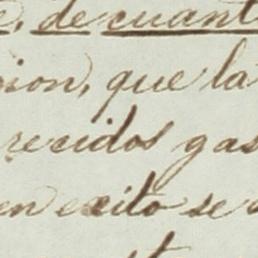 , de cuant
ion, que la
recidos gas
en exito se